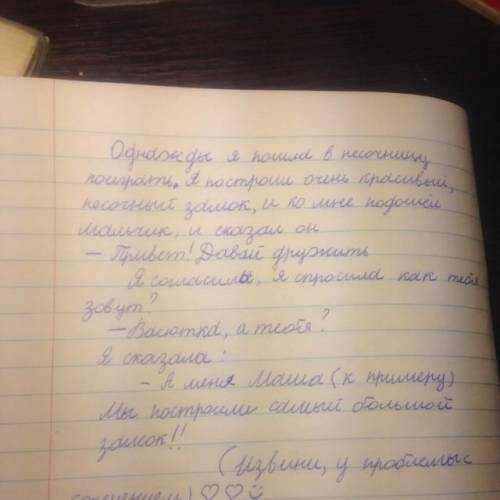 Однажды я пошла в песочницу
поиграть. Я построил очень красивый,
песочный замок, и ко мне подошёл
мальчик, и сказал он
— Привет! Давай дружить
Я согласилась, я спросила как тебя
зовут?
— Васютка, а тебя?
Я сказала:
- А меня Маша (к примеру)
Мы построили самый большой
замок!!
(Извини, у проблемы с
сочинением) ♡♡☺